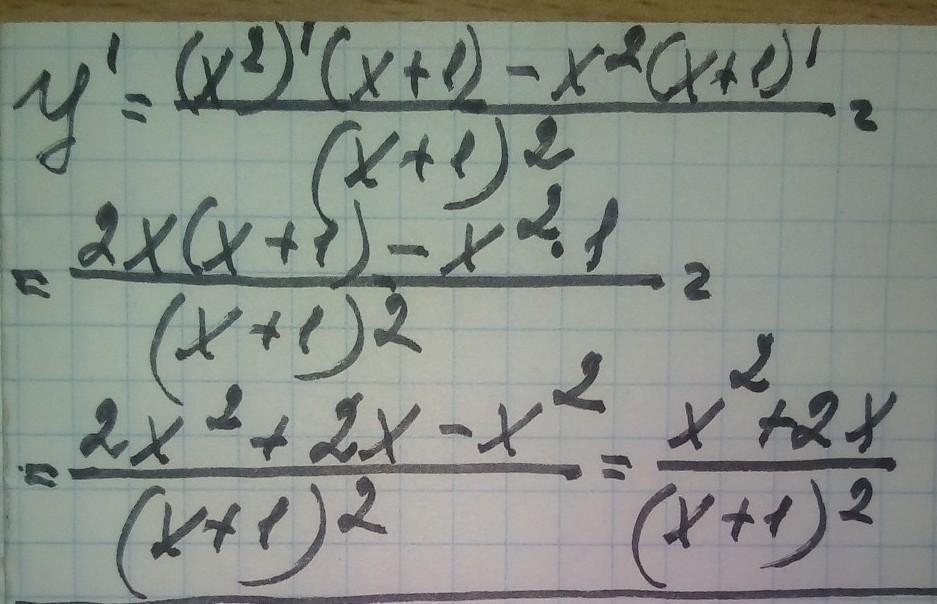 y' = ((x²)'(x+1) - x²(x+1)')/(x+1)² =
= (2x(x+1) - x²·1)/(x+1)² =
= (2x²+2x-x²)/(x+1)² = (x²+2x)/(x+1)²